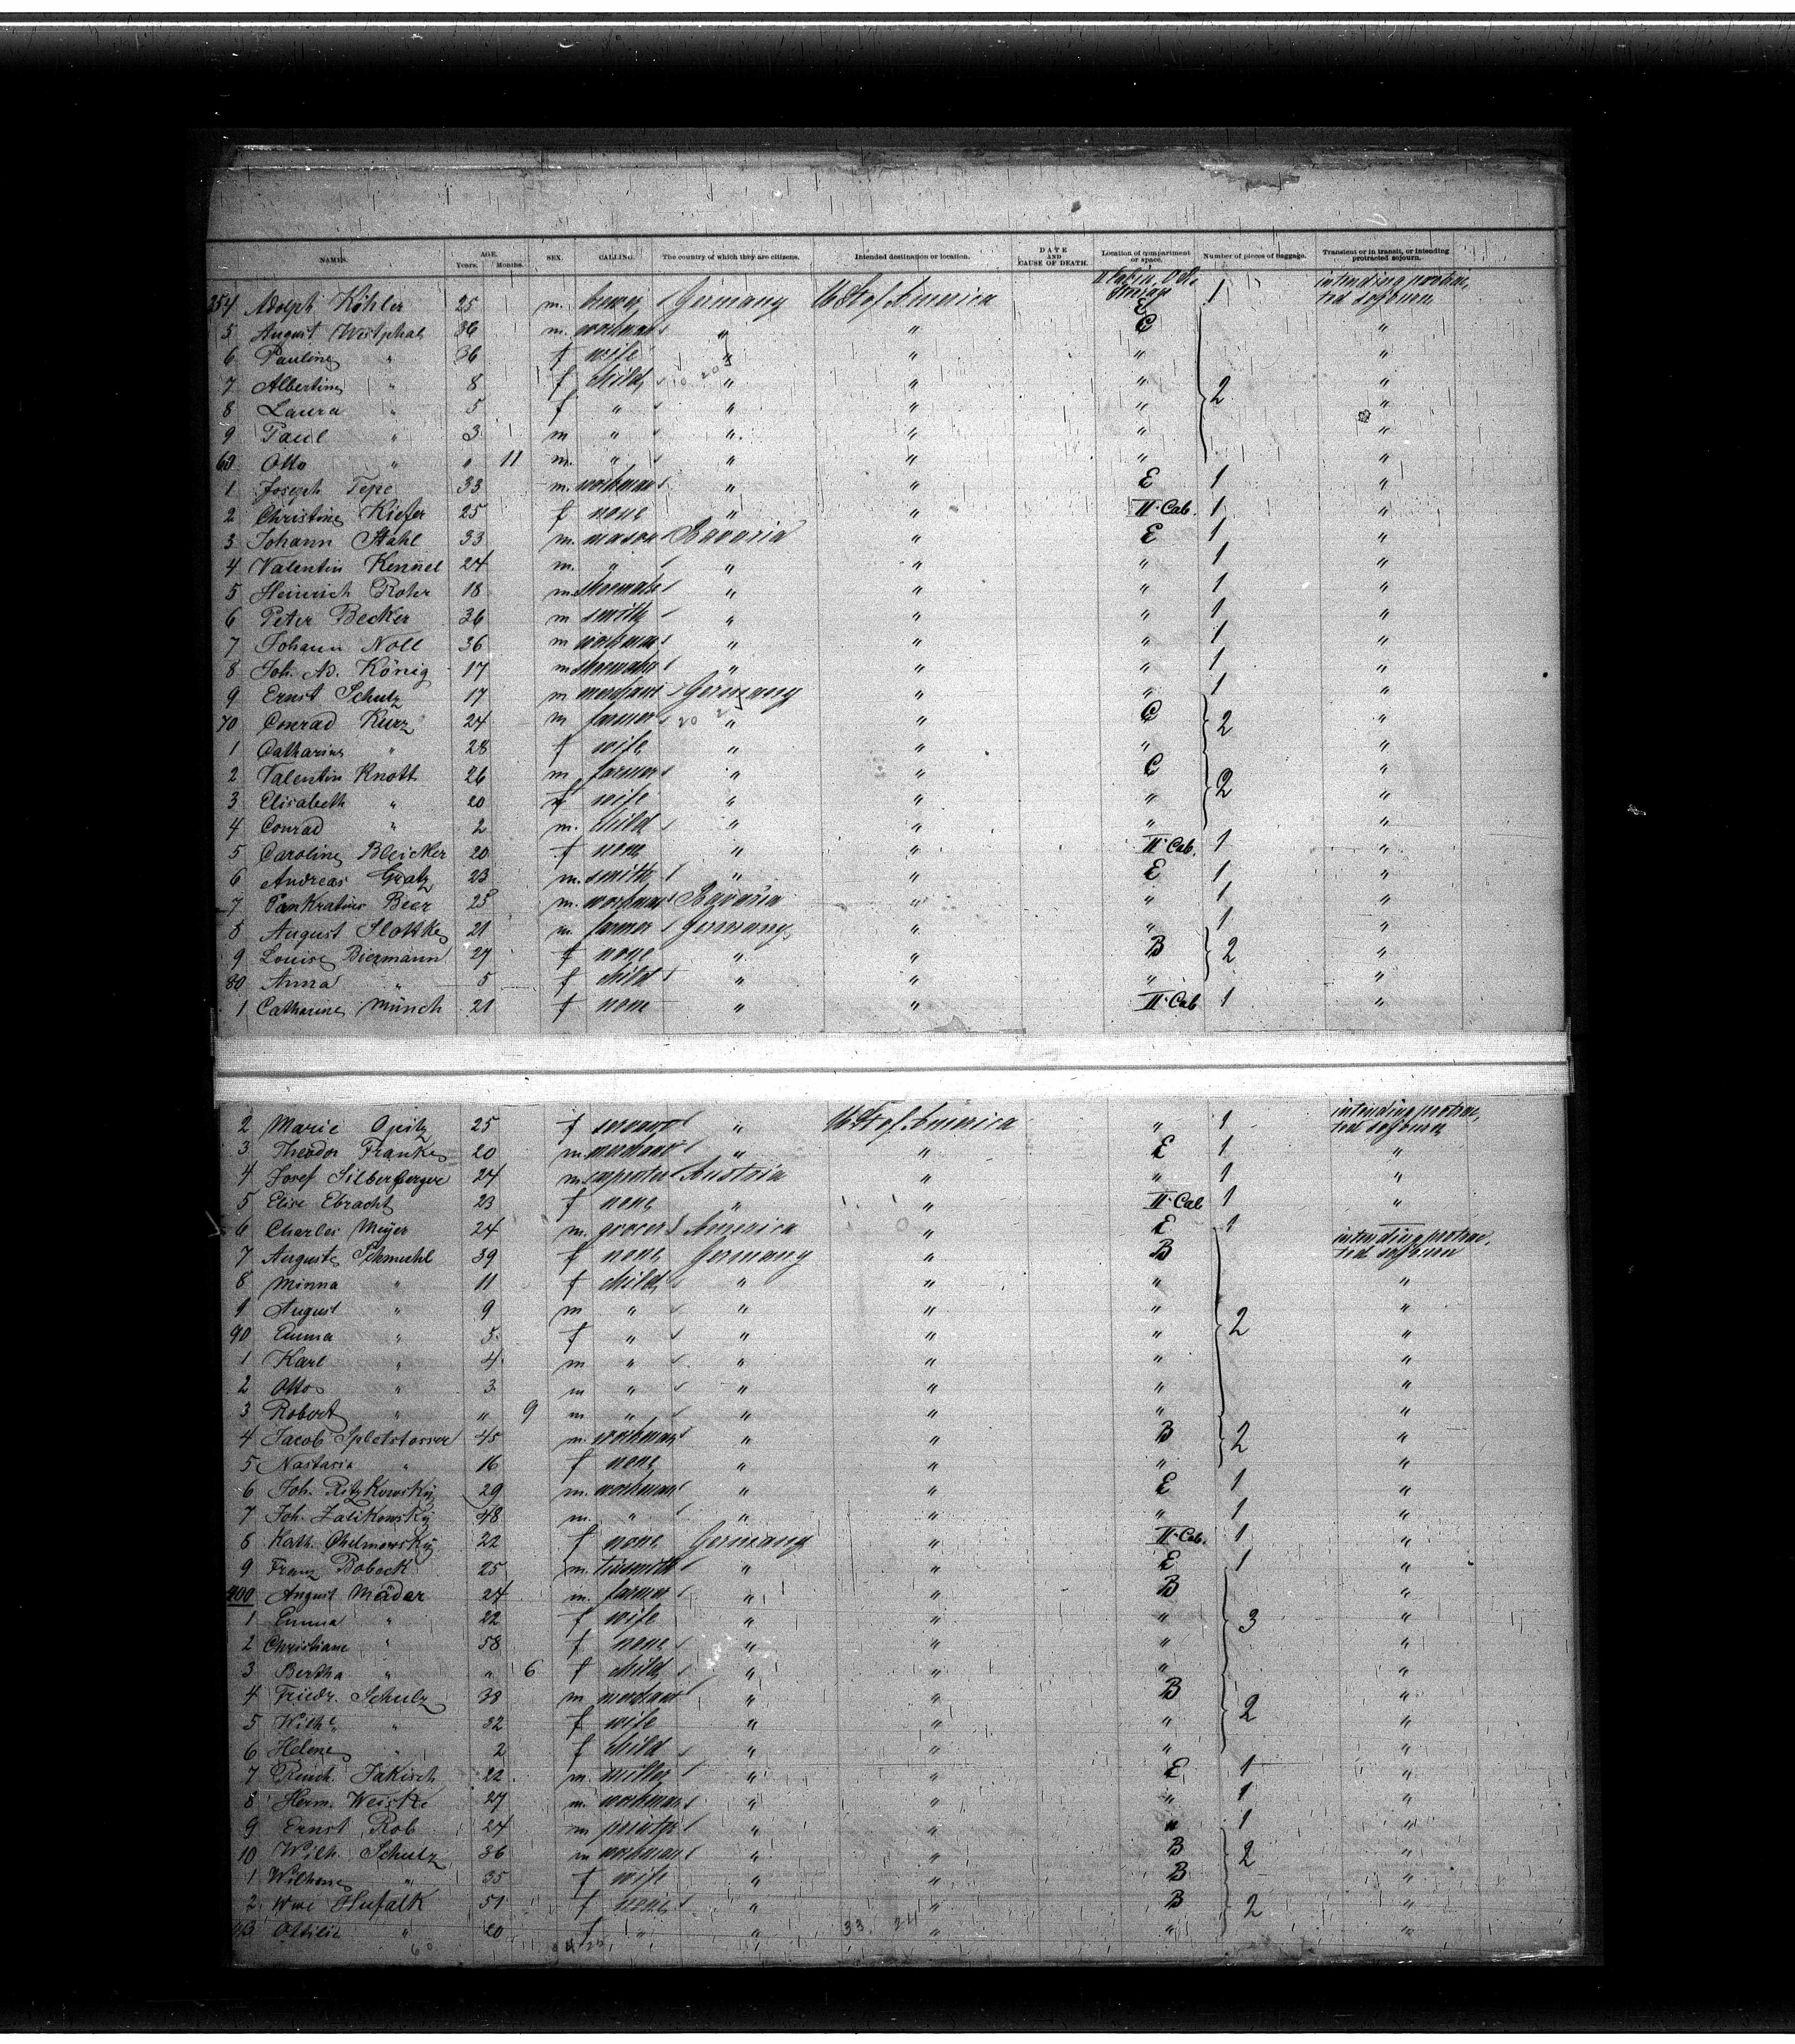 NAMES. AGE. Years. Months. SEX. CALLING. The country of which they are citizens. Intended destination or location. DATE AND CAUSE OF DEATH. Location of compartment or space. Number of pieces of baggage. Transient or in transit, or intending protracted sojourn.
354 Adolph Köhler 25 m. Germany U St of America E 1 intending protrac, ted sojourn
5 August Westphal 36 m. workman " " C "
6 Pauline " 36 f wife " " " "
7 Albertine " 8 f child " " " 2 "
8 Laura " 5 f " " " " "
9 Paul " 3 m " " " " "
60 Otto " " 11 m. " " " " "
1 Joseph Tepe 33 m. workman " " E 1 "
2 Christine Kiefer 25 f none " " II Cab. 1 "
3 Johann Stahl 33 m. mason Bavaria " E 1 "
4 Valentin Kennel 24 m. " " " " 1 "
5 Heinrich Rohr 18 m shoemaker " " " 1 "
6 Peter Becker 36 m smith " " " 1 "
7 Johann Noll 36 m workman " " " 1 "
8 Joh. Ad. König 17 m shoemaker " " " 1 "
9 Ernst Schulz 17 m merchant Germany " " 1 "
70 Conrad Kurz 24 m farmer " " C 2 "
1 Catharine " 28 f wife " " " "
2 Valentin Knott 26 m farmer " " C 2 "
3 Elisabeth " 20 f wife " " " "
4 Conrad " 2 m. child " " " "
5 Caroline Bleicker 20 f none " " II Cab. 1 "
6 Andreas Gratz 23 m. smith " " E 1 "
7 Pankratius Beer 25 m. workman Bavaria " " 1 "
8 August Slottke 21 m. farmer Germany " " 1 "
9 Louise Biermann 27 f none " " B 2 "
80 Anna " 5 f child " " " "
1 Catharine Münch 21 f none " " II Cab 1 "
2 Marie Opitz 25 f servant " U St of America " 1 intending protrac, ted sojourn
3 Theodor Franke 20 m. merchant " " E 1 "
4 Josef Silberberger 24 m. carpenter Austria " " 1 "
5 Elise Ebracht 23 f none " " II Cab 1 "
6 Charles Meyer 24 m. grocer America " E 1
7 Auguste Schmuhl 39 f none Germany " B intending protrac, ted sojourn
8 Minna " 11 f child " " " "
9 August " 9 m " " " " "
90 Emma " 5 f " " " " 2 "
1 Karl " 4 m " " " " "
2 Otto " 3 m " " " " "
3 Robert " " 9 m " " " " "
4 Jacob Spletstosser 45 m. workman " " B 2 "
5 Nastasia " 16 f none " " " "
6 Joh. Ritzkowsky 29 m. workman " " E 1 "
7 Joh. Zalikowsky 48 m. " " " " 1 "
8 Kath. Chelmowsky 22 f none Germany " II Cab. 1 "
9 Franz Bobeck 25 m. tinsmith " " E 1 "
400 August Mäder 24 m. farmer " " B "
1 Emma " 22 f wife " " " 3 "
2 Christiane " 58 f none " " " "
3 Bertha " " 6 f child " " " "
4 Friedr. Schulz 38 m merchant " " B "
5 Wilhe " 32 f wife " " " 2 "
6 Helene " 2 f child " " " "
7 Reinh. Jakisch 22 m. miller " " E 1 "
8 Herm. Weiske 27 m. workman " " " 1 "
9 Ernst Rob 24 m " " " 1 "
10 Wilh. Schulz 36 m workman " " B 2 "
1 Wilhme " 35 f wife " " B "
2 Wwe Hufalk 51 f none " " B 2 "
Ottilie " 20 f " " " " "